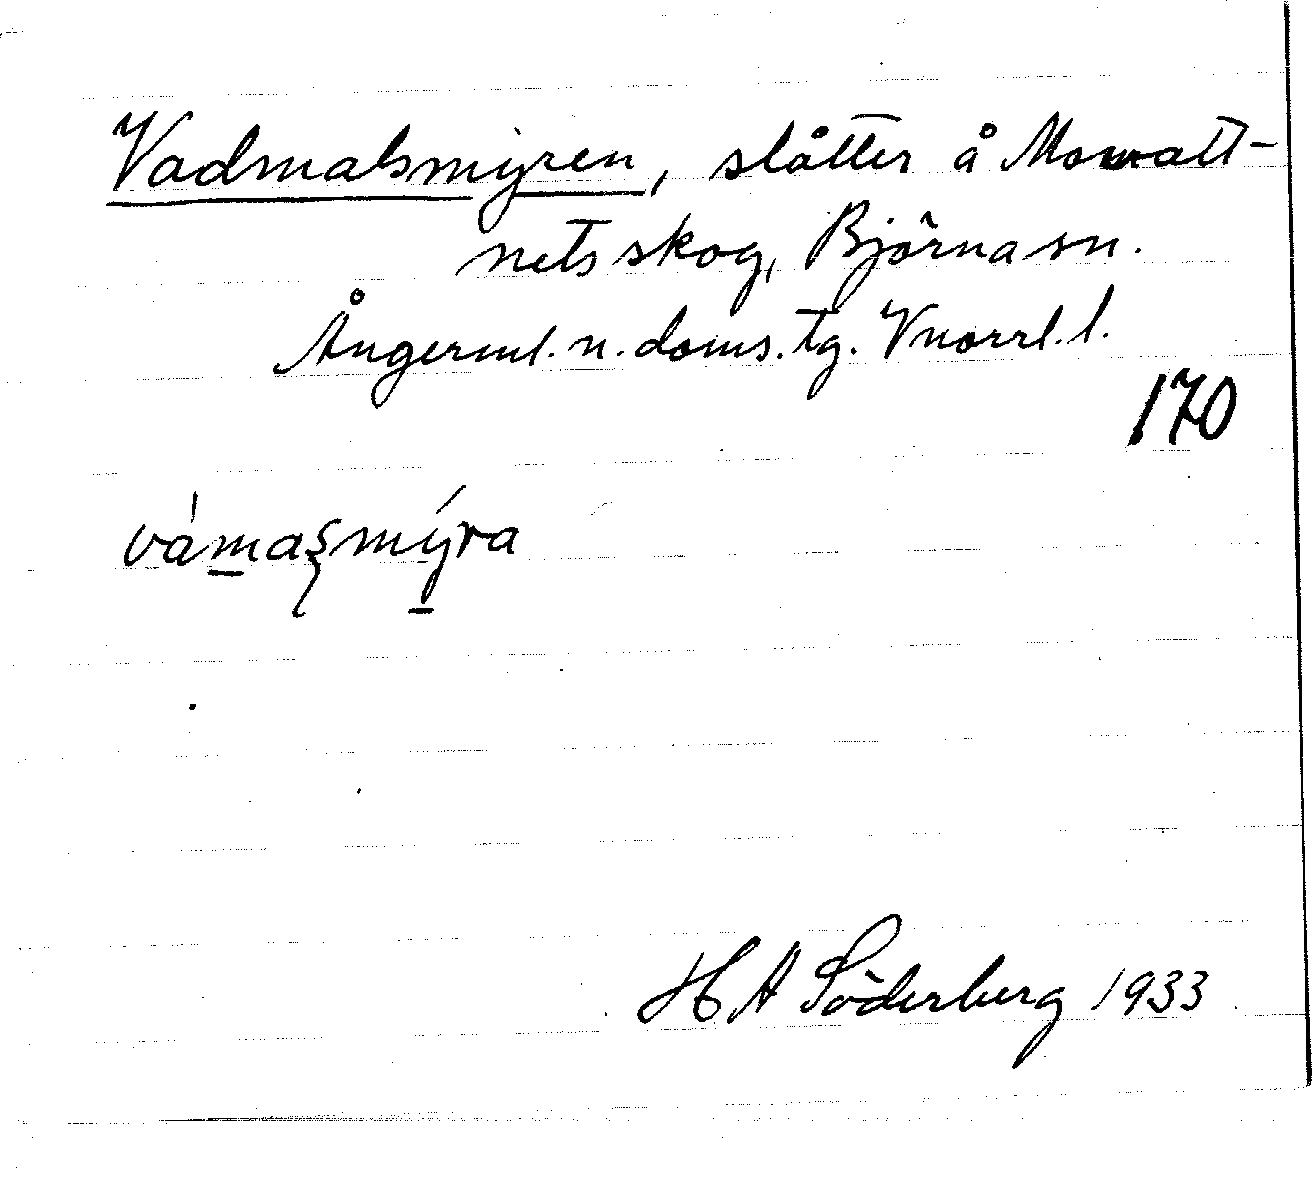 Vadmalsmyren, slåtter å Movatt-
nets skog, Björna sn.
Ångerml. n. doms. tg. Vnorrl. l.
170
vámaşmýra
H A Söderberg 1933